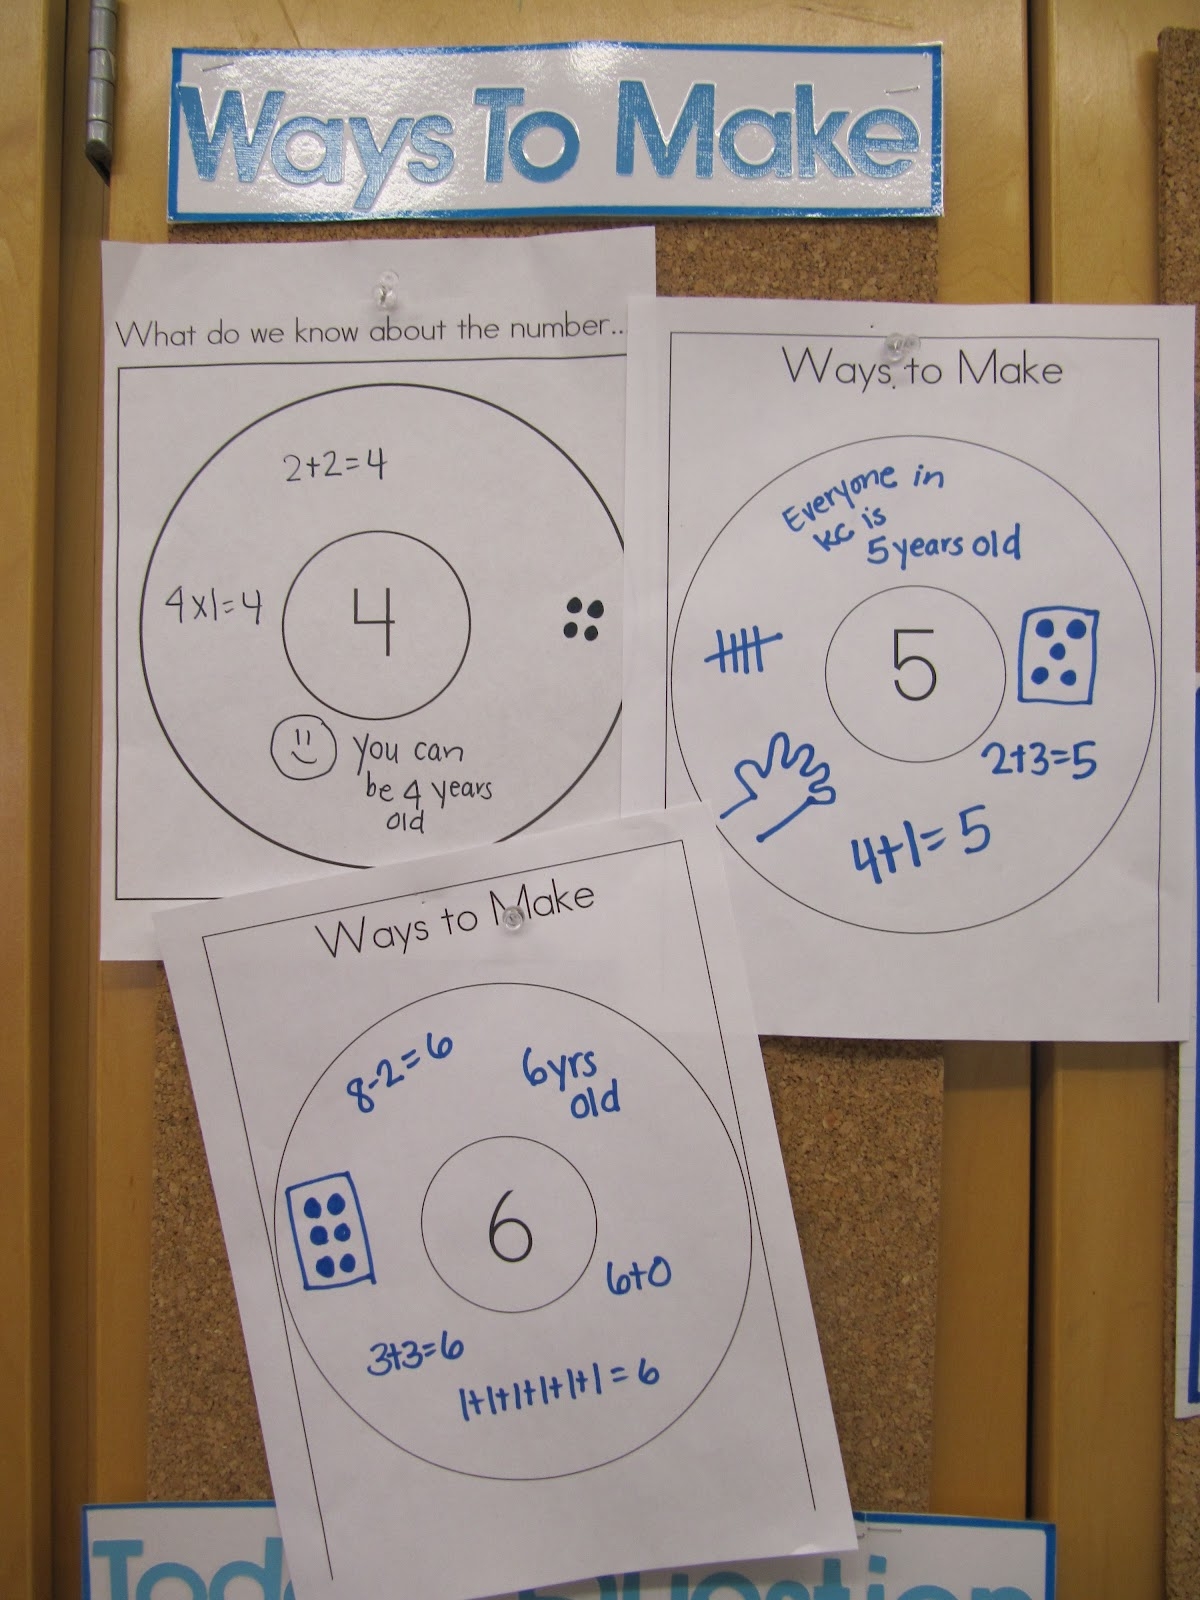 Ways To Make
What do we know about the number..
2+2=4
4x1=4
4
you can
be 4 years
old
Ways to Make
Everyone in
KC is
5 years old
5
2+3=5
4+1=5
Ways to Make
8-2=6
6yrs
old
6
6+0
3+3=6
1+1+1+1+1+1=6
Question